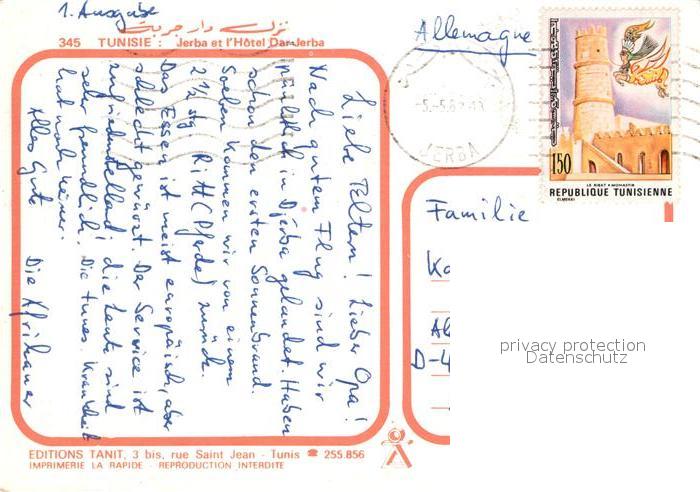 1. Ausgabe
نزل دار جربة
345 TUNISIE : Jerba et l'Hôtel Dar Jerba
Liebe Eltern! Lieber Opa!
Nach gutem Flug sind wir
pünktlich in Djerba gelandet. Haben
schon den ersten Sonnenbrand.
Soeben kommen wir von einem
2½ stg Ritt (Pferde) zurück.
Das Essen ist meist europäisch, aber
schlecht gewürzt. Der Service ist
zufriedenstellend, die Leute sind
sehr freundlich. Die tunes. Krankheit
hat noch keiner.
Alles Gute
Die Afrikaner
EDITIONS TANIT, 3 bis, rue Saint Jean - Tunis ☎ 255.856
IMPRIMERIE LA RAPIDE - REPRODUCTION INTERDITE
Allemagne
JERBA
150
LE RIBAT MONASTIR
REPUBLIQUE TUNISIENNE
ELMEKKI
Familie
Ka
Al
D-4
privacy protection
Datenschutz